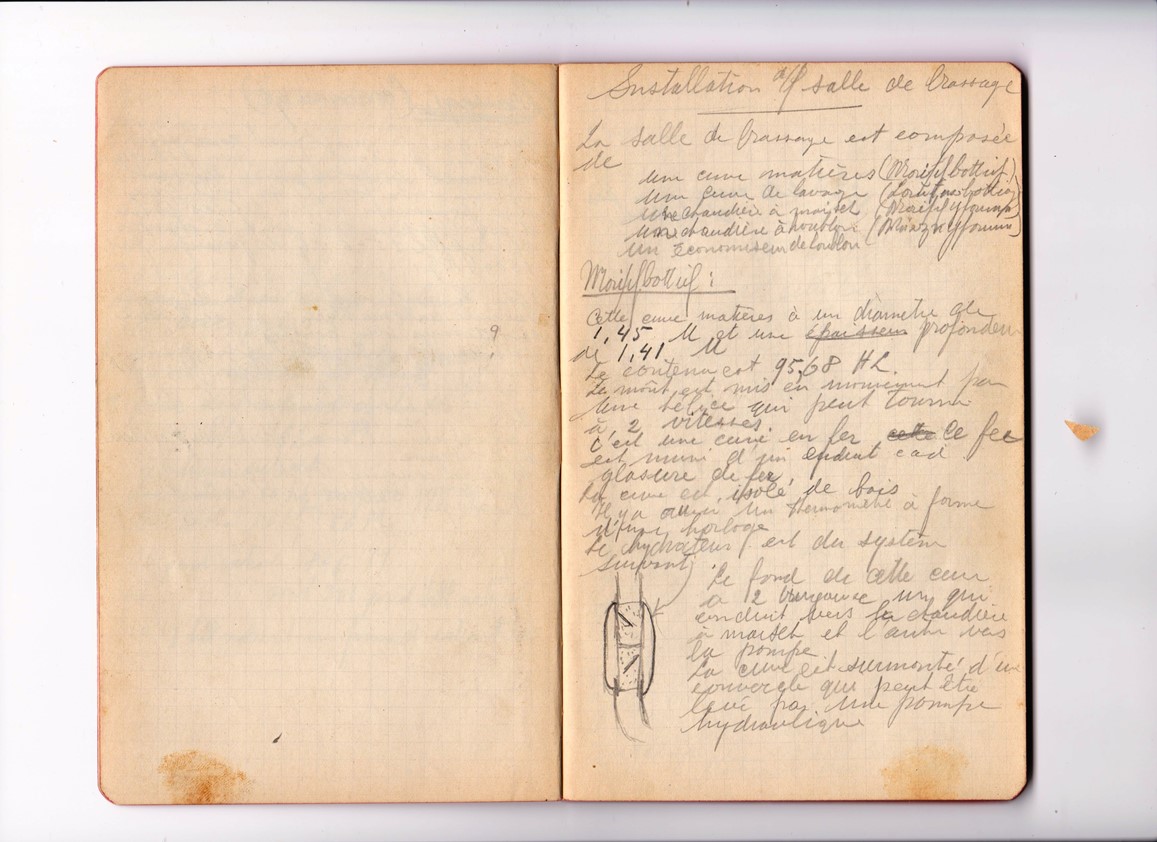 Installation d/l salle de brassage
La salle de brassage est composée
de
une cuve matières (Maischbottich)
une cuve de lavage
une chaudière à maisch
une chaudière à houblon
un économiseur de houblon
Maischbottich :
Cette cuve matières à un diamètre de
1,45 M et une épaisseur profondeur
de 1,41 M
Le contenu est 95,68 HL.
Le moût est mis en mouvement par
une hélice qui peut tourner
à 2 vitesses
C'est une cuve en fer cette Ce fer
est muni d'un enduit cad
glasure de fer
La cuve est isolé de bois
Il y a aussi un thermomètre à forme
d'une horloge
Le hydrateur est du système
suivant
Le fond de cette cuve
a 2 un qui
conduit vers la chaudière
à maisch et l'autre vers
la pompe.
La cuve est surmonté d'un
couvercle qui peut être
levé par une pompe
hydraulique
9